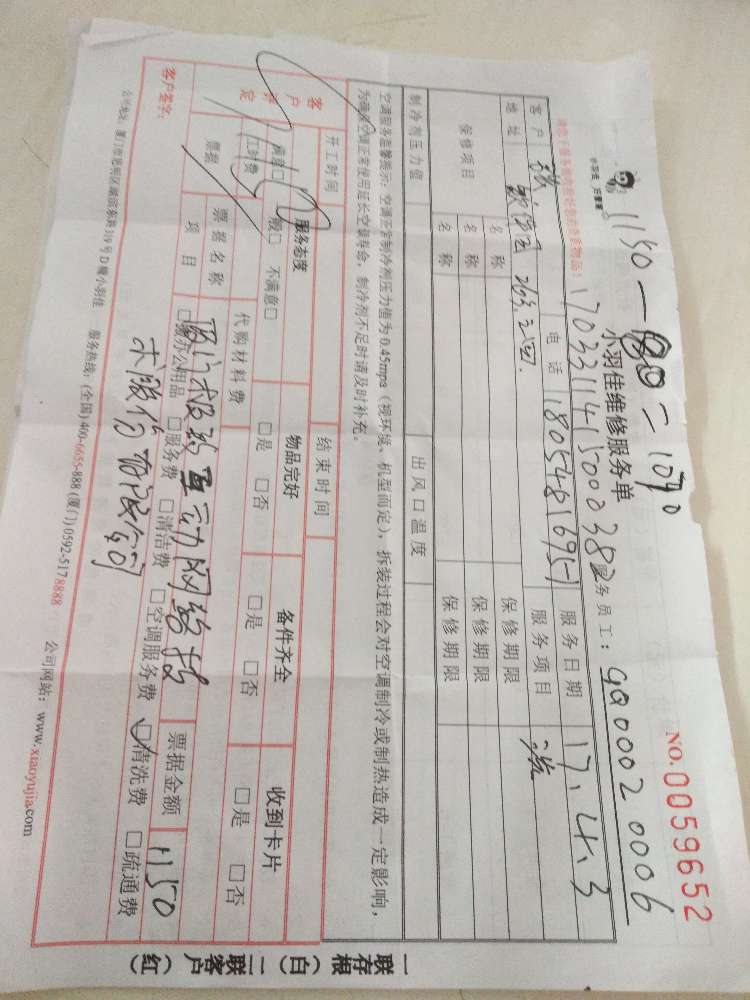 1150-80=1070
NO.0059652
小羽佳 好管家
小羽佳维修服务单
170331415000382
服务员工：
9900020006
客户
张
电话
18054816951
服务日期
17.4.3
地址
服务项目
保修项目
名称
保修期限
名称
保修期限
名称
保修期限
制冷剂压力值
出风口温度
空调服务温馨提示：空调正常制冷剂压力值为0.45mpa（视环境、机型而定），拆装过程会对空调制冷或制热造成一定影响，
为确保空调正常使用延长空调寿命，制冷剂不足时请及时补充。
开工时间
结束时间
客户评定
服务态度
物品完好
备件齐全
收到卡片
满意□
般□ 不满意□
□是 □否
□是 □否
□是 □否
工时费
代购材料费
票据
票据名称
厦门极致互动网络技
术股份有限公司
票据金额
1150
项目
□办公用品 □服务费 □清洁费 □空调服务费 □清洗费 □疏通费
客户签字：
公司地址：厦门市思明区湖滨东路319号D幢小羽佳 服务热线：(全国)400-6655-888 (厦门)0592-5178888 公司网站：www.xiaoyujia.com
一联存根（白）二联客户（红）